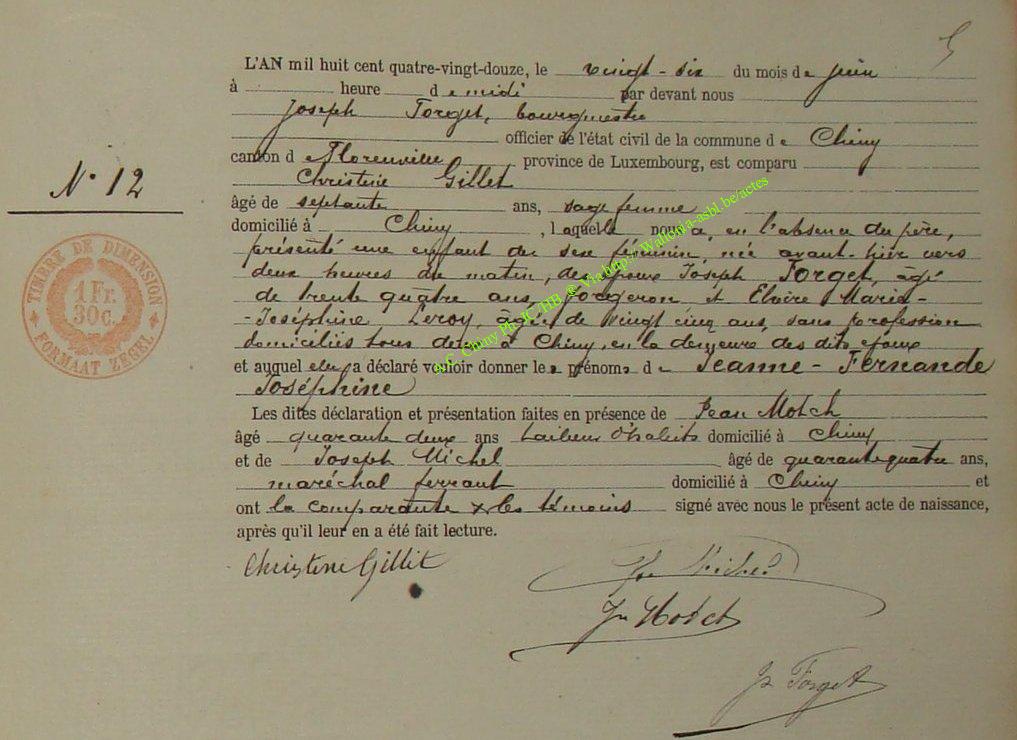 5
L'AN mil huit cent quatre-vingt-douze, le vingt-six du mois de juin
à heure de midi par devant nous
Joseph Forget, bourgmestre
officier de l'état civil de la commune de Chiny
canton d Florenville province de Luxembourg, est comparu
Christine Gillet
N° 12
âgé de septante ans, sage femme
domicilié à Chiny, laquelle nous a, en l'absence du père,
présenté une enfant du sexe féminin, née avant-hier vers
deux heures du matin, des époux Joseph Forget, âgé
de trente quatre ans, forgeron et Elvire Marie-
-Joséphine Leroy, âgée de vingt cinq ans, sans profession
domiciliés tous deux à Chiny, en la demeure des dits époux
et auquel elle a déclaré vouloir donner les prénoms de Jeanne-Fernande
Joséphine
TIMBRE DE DIMENSION
1 Fr.
30c.
FORMAAT ZEGEL
Les dites déclaration et présentation faites en présence de Jean Motch
âgé quarante deux ans tailleur d'habits domicilié à Chiny
et de Joseph Michel âgé de quarante quatre ans,
maréchal ferrant domicilié à Chiny et
ont la comparante & les témoins signé avec nous le présent acte de naissance,
après qu'il leur en a été fait lecture.
Christine Gillet
Jos Michel
Jn Motch
Js Forget
A.C. Chiny Ph.JC.HB. @ Via http://Wallonia-asbl.be/actes